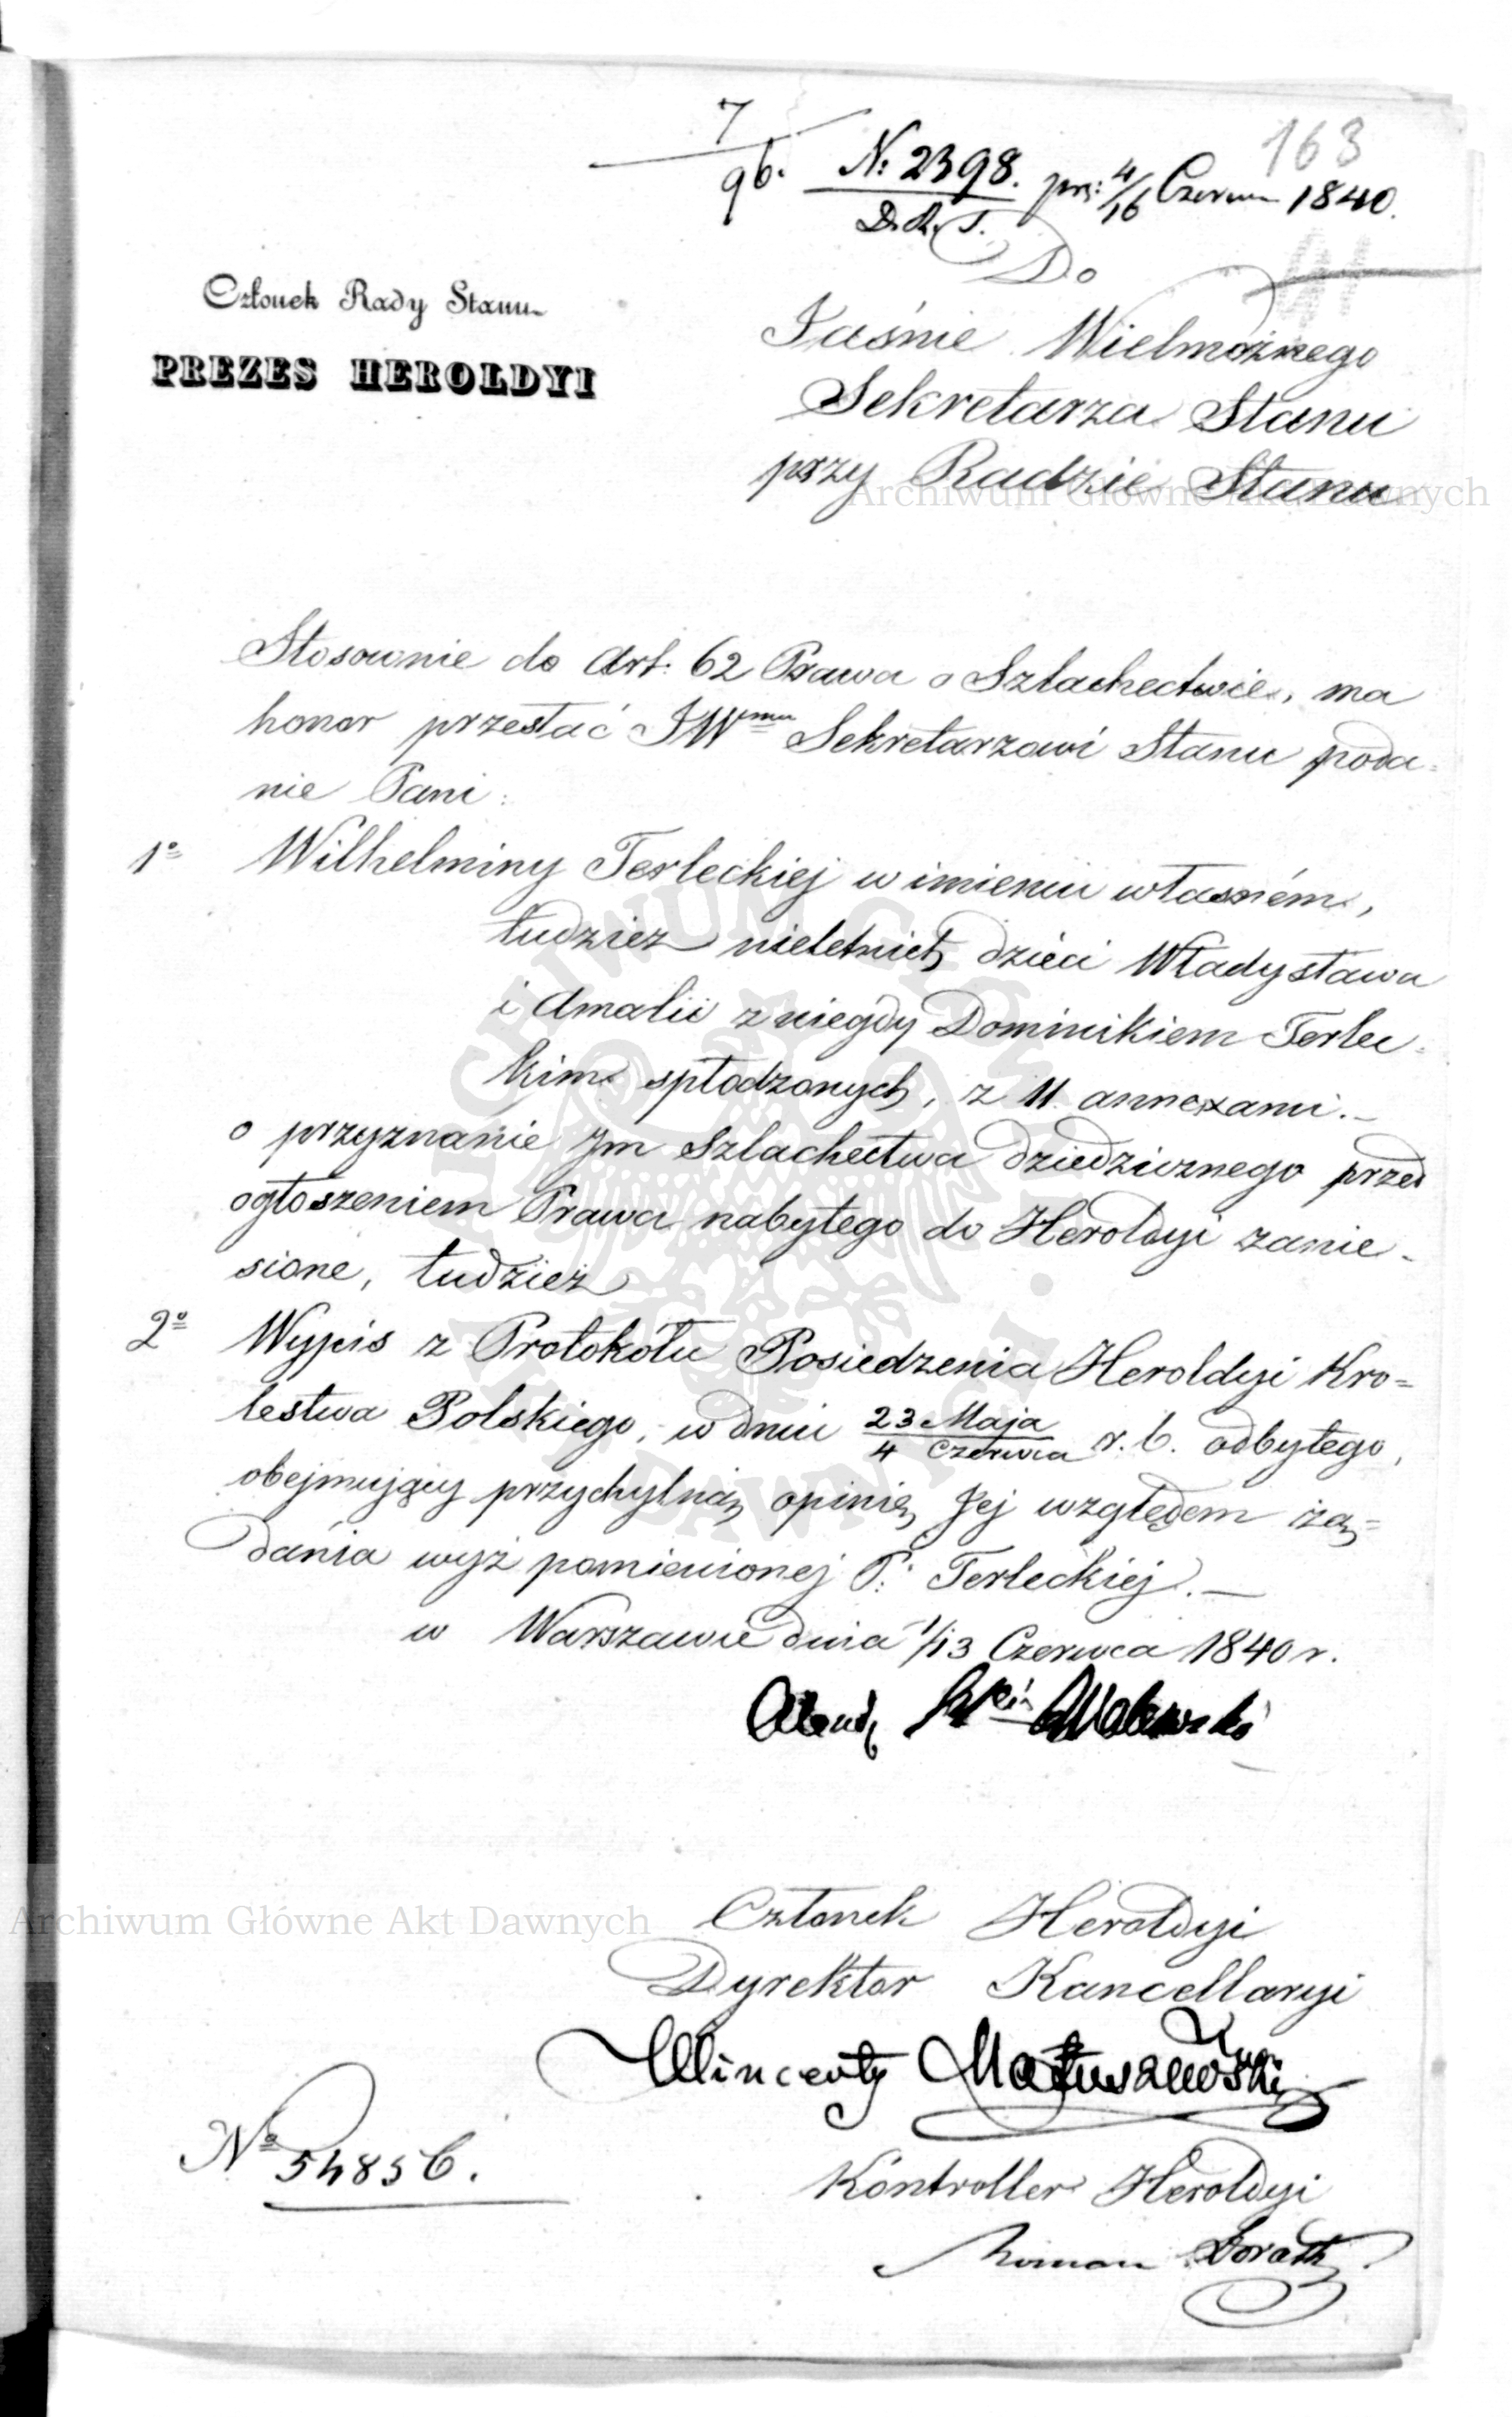 163
7
96. N: 2398. prz: 4/16 Czerwca 1840.
D. R. S.
Do
Członek Rady Stanu
PREZES HEROLDYI
Jaśnie Wielmożnego
Sekretarza Stanu
przy Radzie Stanu
Archiwum Główne Akt Dawnych
Stosownie do Art: 62 Prawa o Szlachectwie, ma
honor przesłać JWmu Sekretarzowi Stanu poda=
nie Pani:
1o Wilhelminy Terleckiej w imieniu własném,
tudzież nieletnich dzieci Władysława
i Amalii z niegdy Dominikiem Terlec=
kim spłodzonych, z 11 annexami.—
o przyznanie Jm Szlachectwa dziedzicznego przed
ogłoszeniem Prawa nabytego do Heroldyi zanie=
sione, tudzież
2o Wypis z Protokółu Posiedzenia Heroldyi Kro=
lestwa Polskiego, w dniu 23 Maja / 4 Czerwca r. b. odbytego,
obejmujący przychylną opinię Jej względem żą=
dania wyż pomienionej P: Terleckiej.—
w Warszawie dnia 1/13 Czerwca 1840 r.
Walewski
Archiwum Główne Akt Dawnych
Członek Heroldyi
Dyrektor Kancellaryi
Wincenty Matuszewski
No 54856.
Kontroller Heroldyi
Roman
ARCHIWUM GŁÓWNE AKT DAWNYCH